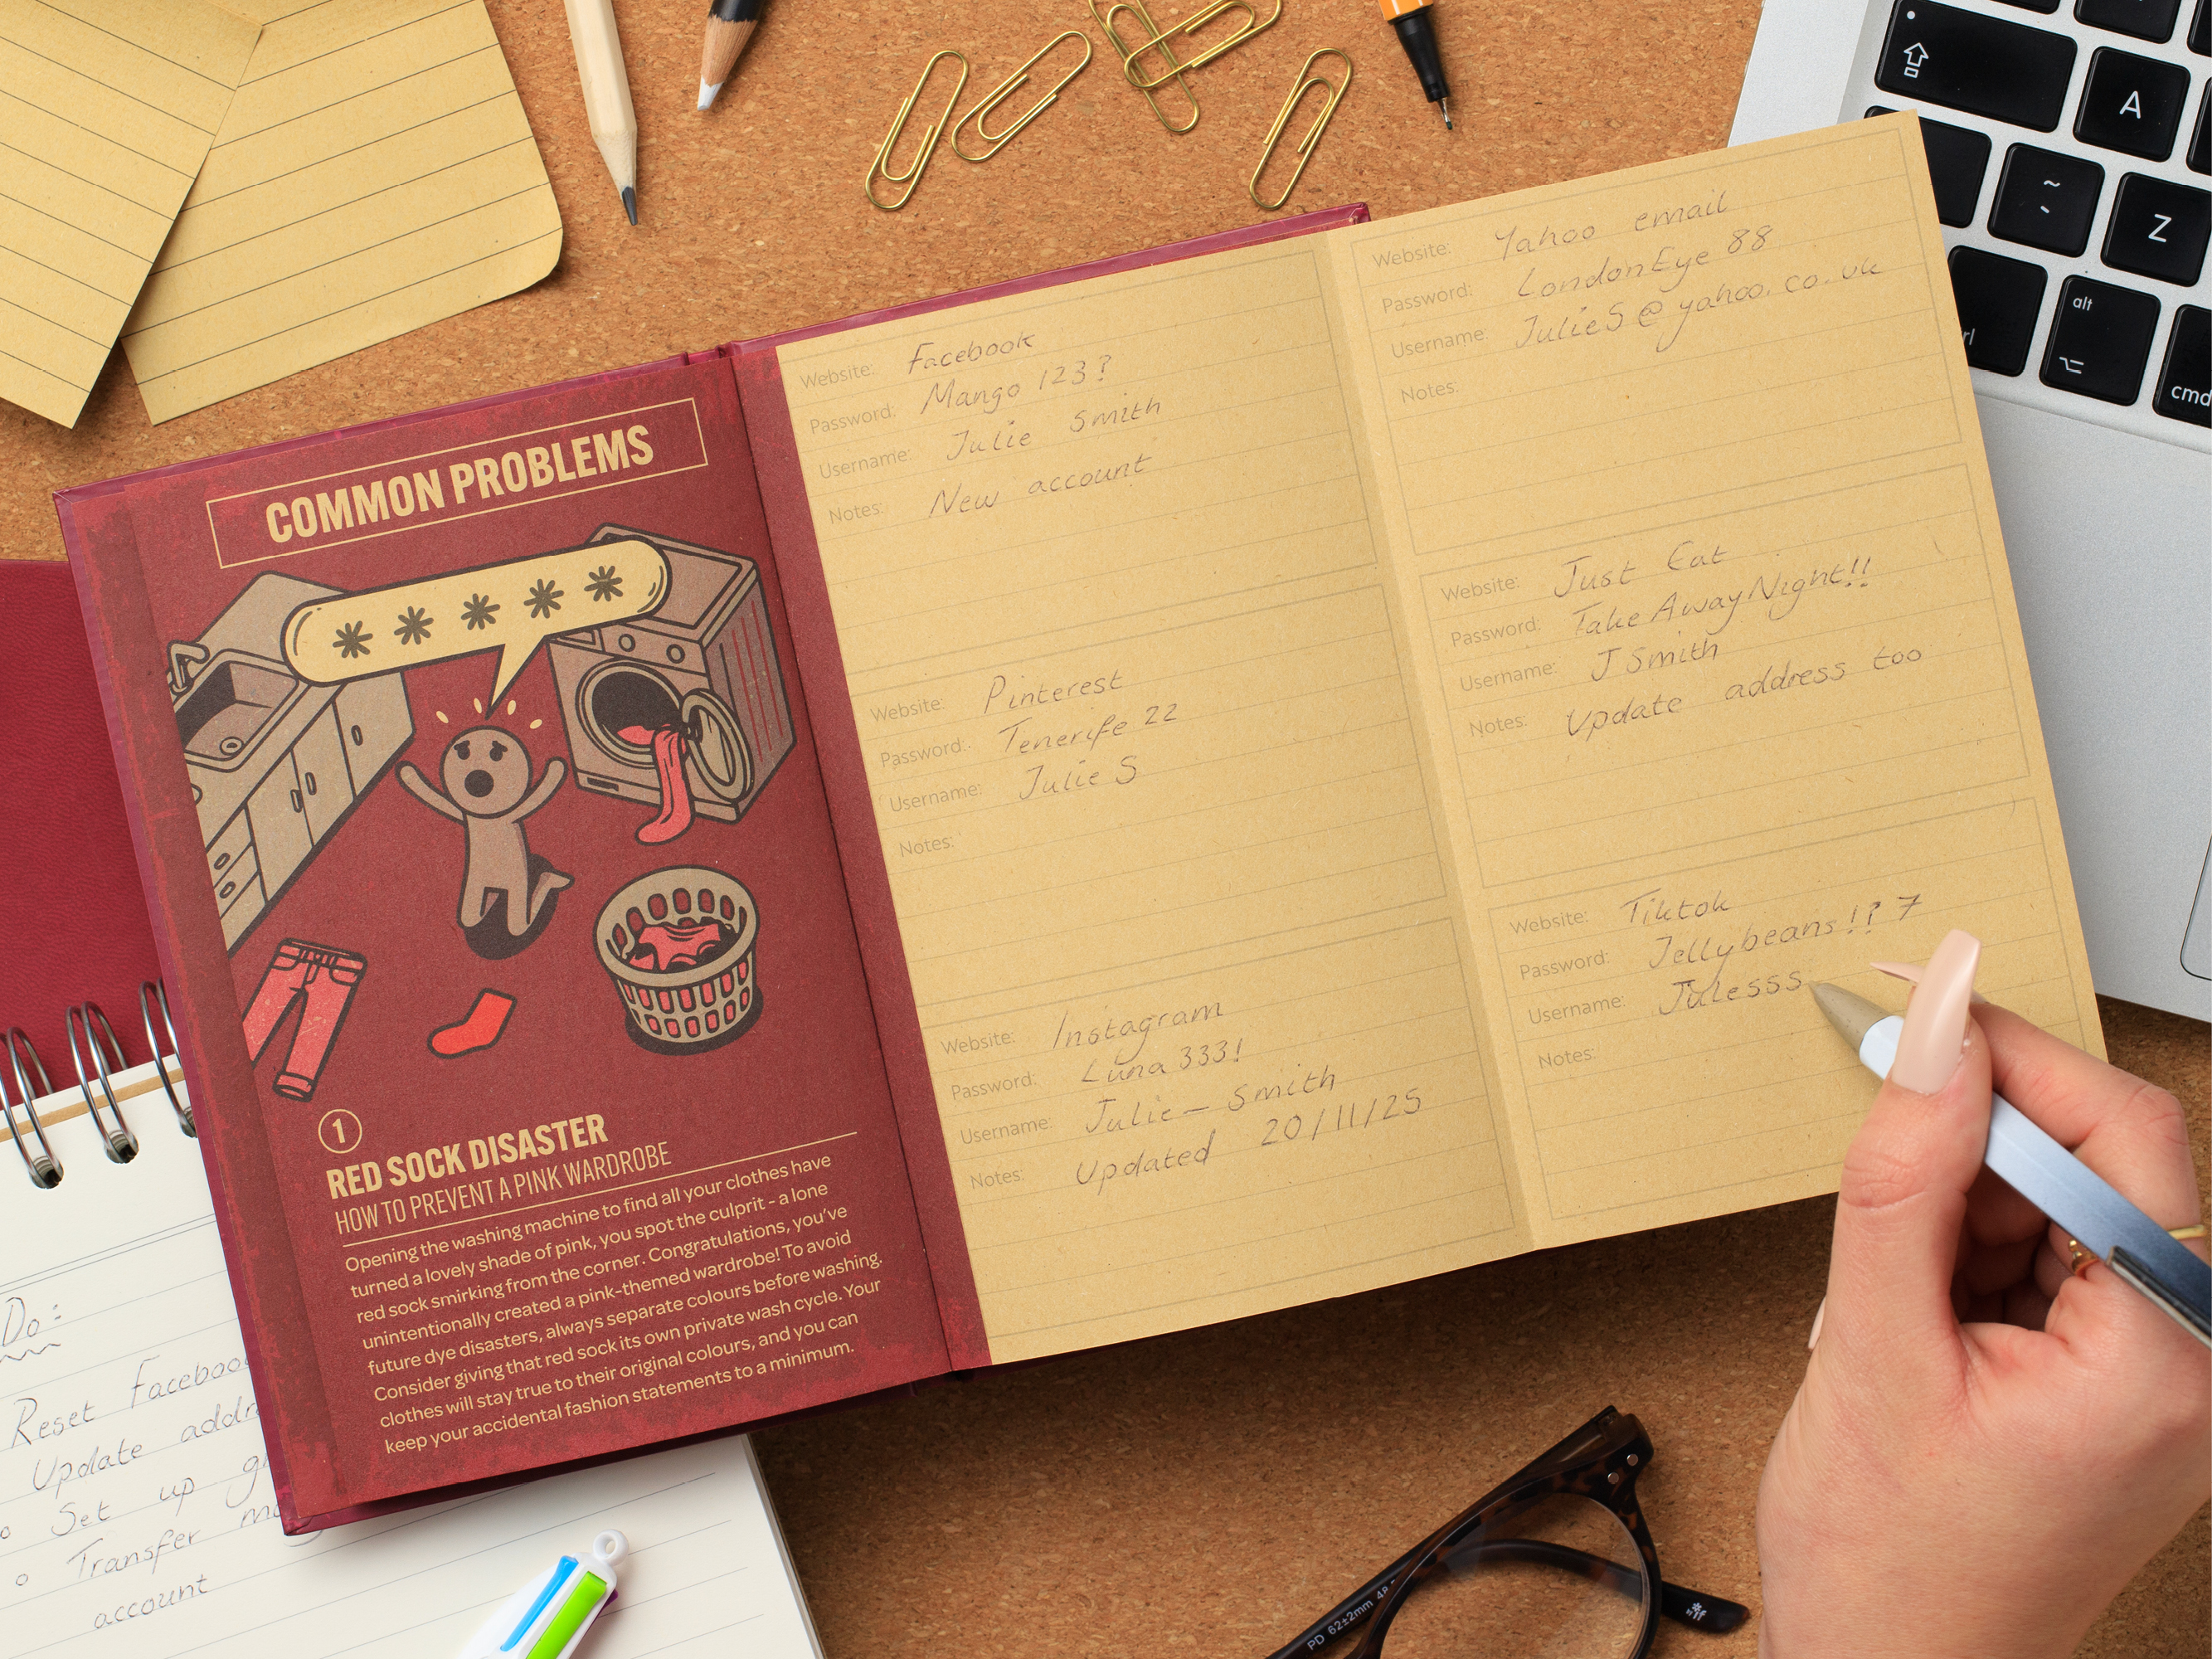 COMMON PROBLEMS
* * * * *
1
RED SOCK DISASTER
HOW TO PREVENT A PINK WARDROBE
Opening the washing machine to find all your clothes have
turned a lovely shade of pink, you spot the culprit - a lone
red sock smirking from the corner. Congratulations, you've
unintentionally created a pink-themed wardrobe! To avoid
future dye disasters, always separate colours before washing.
Consider giving that red sock its own private wash cycle. Your
clothes will stay true to their original colours, and you can
keep your accidental fashion statements to a minimum.
Website: Facebook
Password: Mango 123?
Username: Julie Smith
Notes: New account
Website: Pinterest
Password: Tenerife 22
Username: Julie S
Notes:
Website: Instagram
Password: Luna 333!
Username: Julie - Smith
Notes: Updated 20/11/25
Website: Yahoo email
Password: LondonEye 88
Username: JulieS@yahoo.co.uk
Notes:
Website: Just Eat
Password: TakeAwayNight!!
Username: J Smith
Notes: Update address too
Website: Tiktok
Password: Jellybeans!? 7
Username: Julesss
Notes:
Do:
Reset Facebook
Update
Set up
Transfer
account
A
~
Z
alt
cmd
PD 62±2mm 48